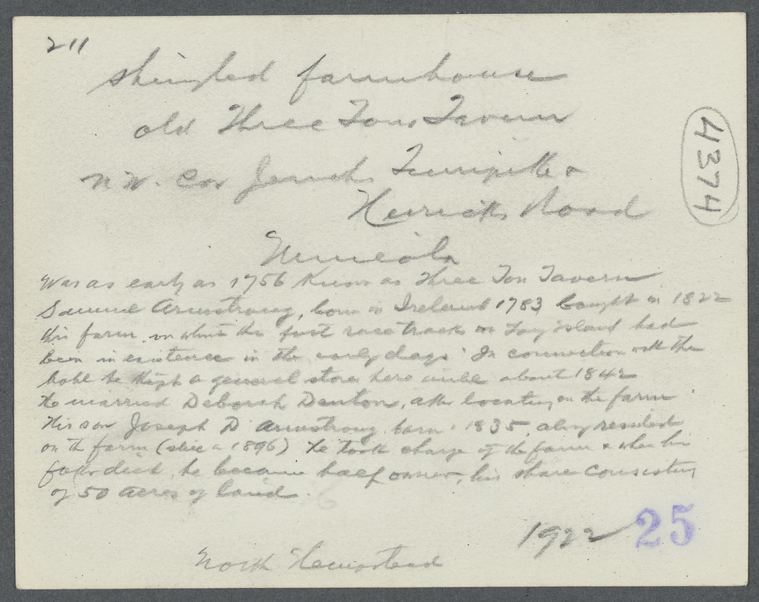 211
shingled farmhouse
old Three Tons Tavern
N.W. Cor Jericho Turnpike &
Herricks Road
Mineola
4374
Was as early as 1756 Known as Three Ton Tavern
Samuel Armstrong, born in Ireland 1783 bought in 1822
this farm on which the first race track on Long Island had
been in existence in the early days. In connection with the
hotel he kept a general store here until about 1842
He married Deborah Denton, after locating on the farm
His son Joseph D Armstrong born 1835, always resided
on the farm ( 1896) he took charge of the farm & when his
father died, he became half owner, his share consisting
of 50 acres of land.
1922 25
North Hempstead